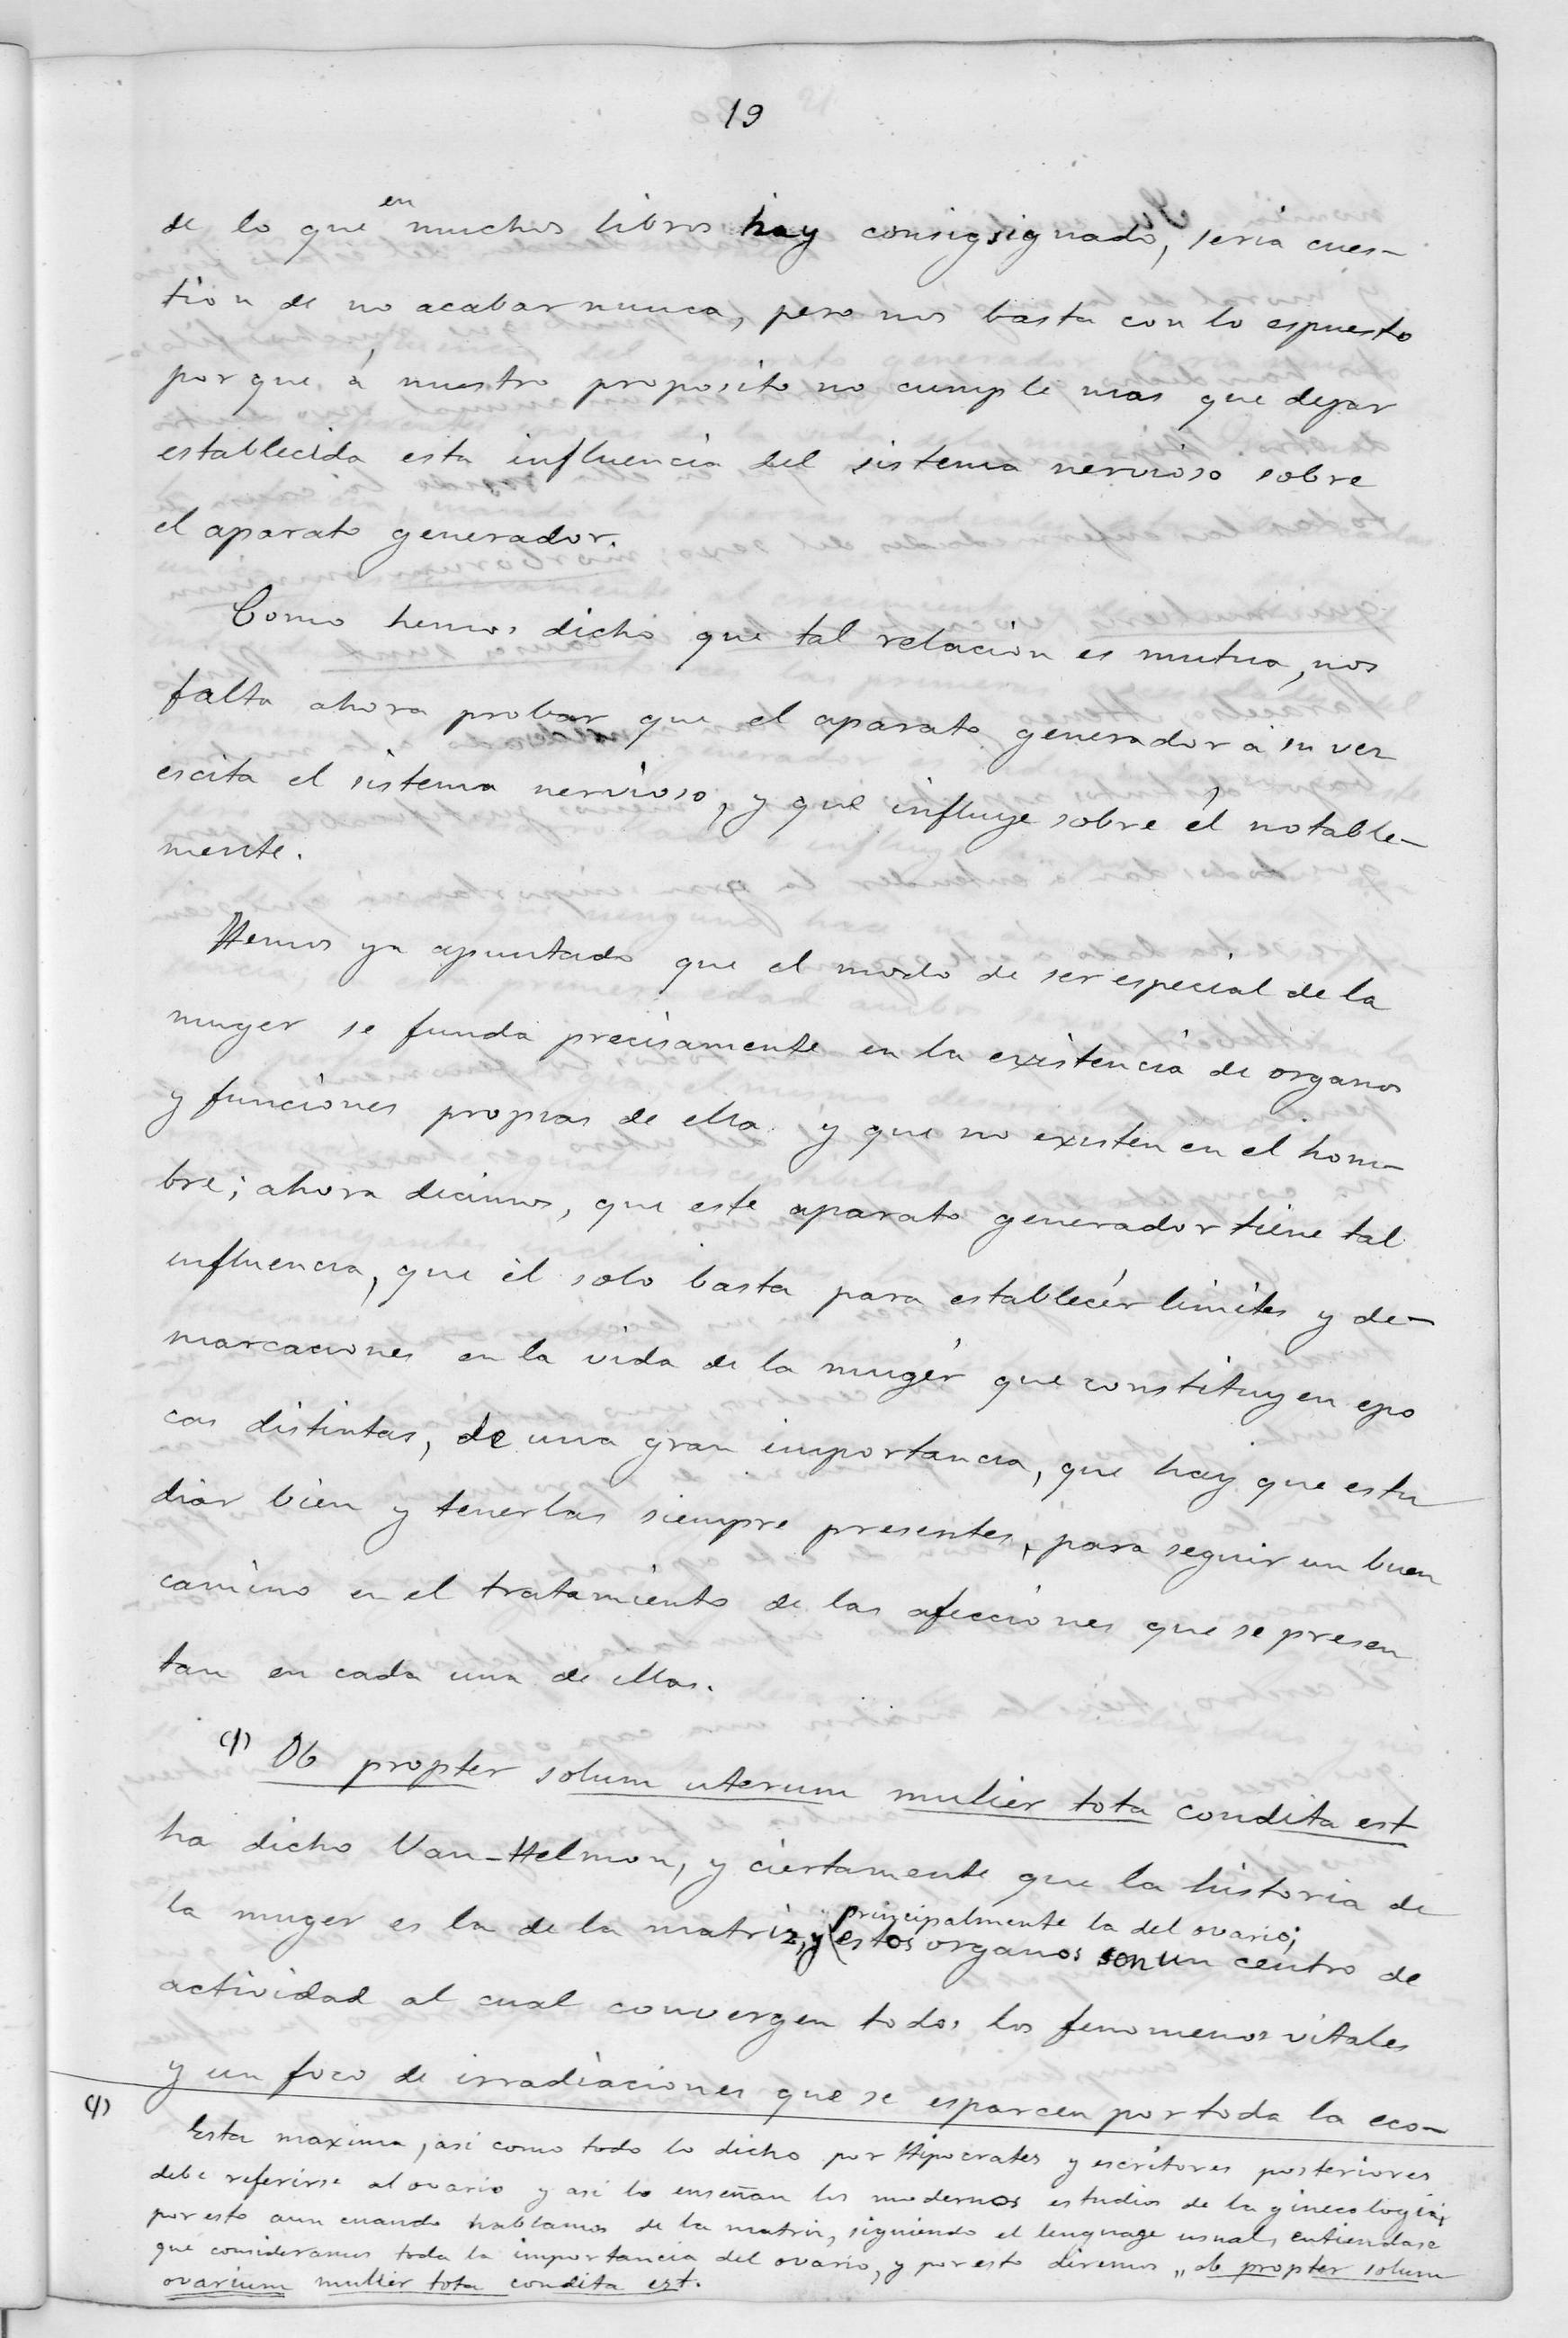 19
de lo que en muchos libros hay consigsignado, seria cues-
tion de no acabar nunca, pero nos basta con lo espuesto
porque á nuestro proposito no cumple mas que dejar
establecida esta influencia del sistema nervioso sobre
el aparato generador.
Como hemos dicho que tal relacion es mutua, nos
falta ahora probar que el aparato generador á su vez
escita el sistema nervioso, y que influye sobre él notable-
mente.
Hemos ya apuntado que el modo de ser especial de la
muger se funda precisamente en la existencia de organos
y funciones propias de ella y que no existen en el hom-
bre; ahora decimos, que este aparato generador tiene tal
influencia, que él solo basta para establecer limites y de-
marcaciones en la vida de la muger que constituyen epo
cas distintas, de una gran importancia, que hay que estu
diar bien y tenerlas siempre presentes, para seguir un buen
camino en el tratamiento de las afecciones que se presen
tan en cada una de ellas.
(1) Ob propter solum uterum mulier tota condita est
ha dicho Van-Helmon, y ciertamente que la historia de
la muger es la de la matriz, y principalmente la del ovario; estos organos son un centro de
actividad al cual convergen todos los fenomenos vitales
y un foco de irradiaciones que se esparcen por toda la eco-
(1) Esta maxima, asi como todo lo dicho por Hipocrates y escritores posteriores
debe referirse al ovario y asi lo enseñan los modernos estudios de la ginecologia,
por esto aun cuando hablamos de la matriz, siguiendo el lenguage usual, entiendase
que consideramos toda la importancia del ovario, y por esto diremos „ob propter solum
ovarium mulier tota condita est.